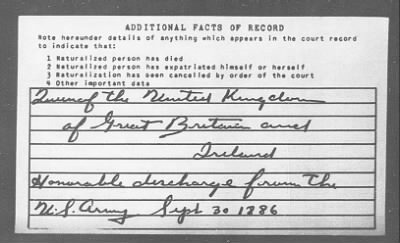 ADDITIONAL FACTS OF RECORD
Note hereunder details of anything which appears in the court record
to indicate that:
1 Naturalized person has died
2 Naturalized person has expatriated himself or herself
3 Naturalization has been cancelled by order of the court
4 Other important data
Queen of the United Kingdom
of Great Britain and
Ireland
Honorable discharge from the
U.S. Army Sept 30 1886